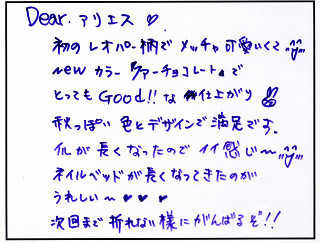 Dear. アリエス ♡
初のレオパード柄でメッチャ可愛いくて
newカラー『ファーチョコレート』で
とってもGood!! な仕上がり
秋っぽい色とデザインで満足です。
爪が長くなったのでイイ感じ〜
ネイルベッドが長くなってきたのが
うれしい〜 ♥ ♥ ♥
次回まで折れない様にがんばるぞ!!